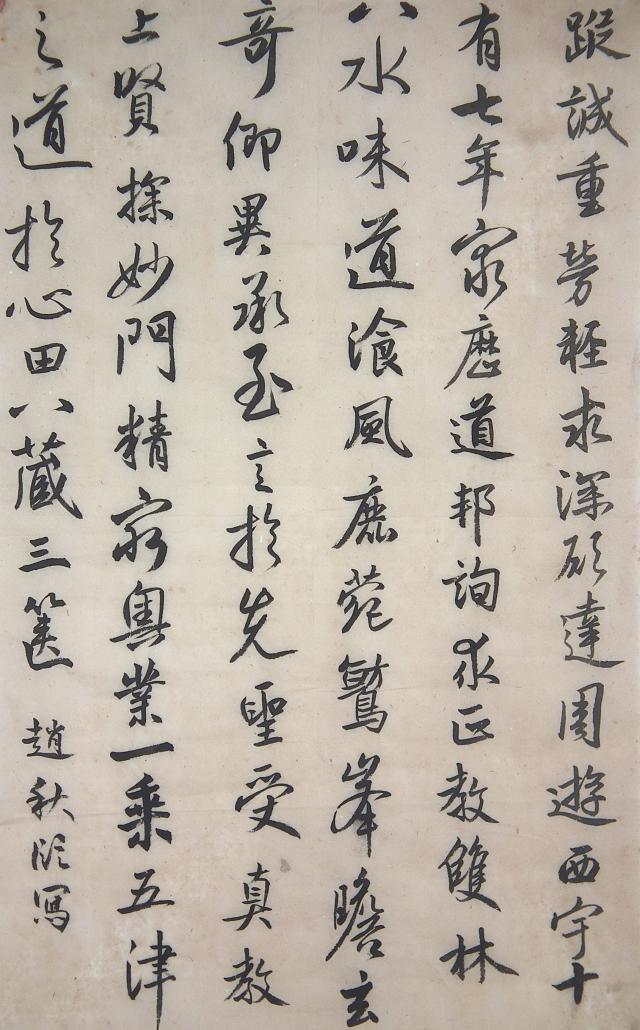 蹤誠重勞輕求深願達周遊西宇十
有七年窮歷道邦詢求正教雙林
八水味道飡風鹿菀鷲峯瞻玄
奇仰異承至言於先聖受真教
上賢探妙門精窮奧業一乘五津
之道於心田八藏三篋
趙秋 寫